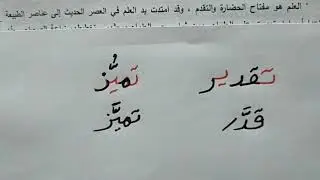 العلم هو مفتاح الحضارة والتقدم ، وقد امتدت يد العلم في العصر الحديث إلى عناصر الطبيعة
تقدير تميُّز
قدَّر تميَّز